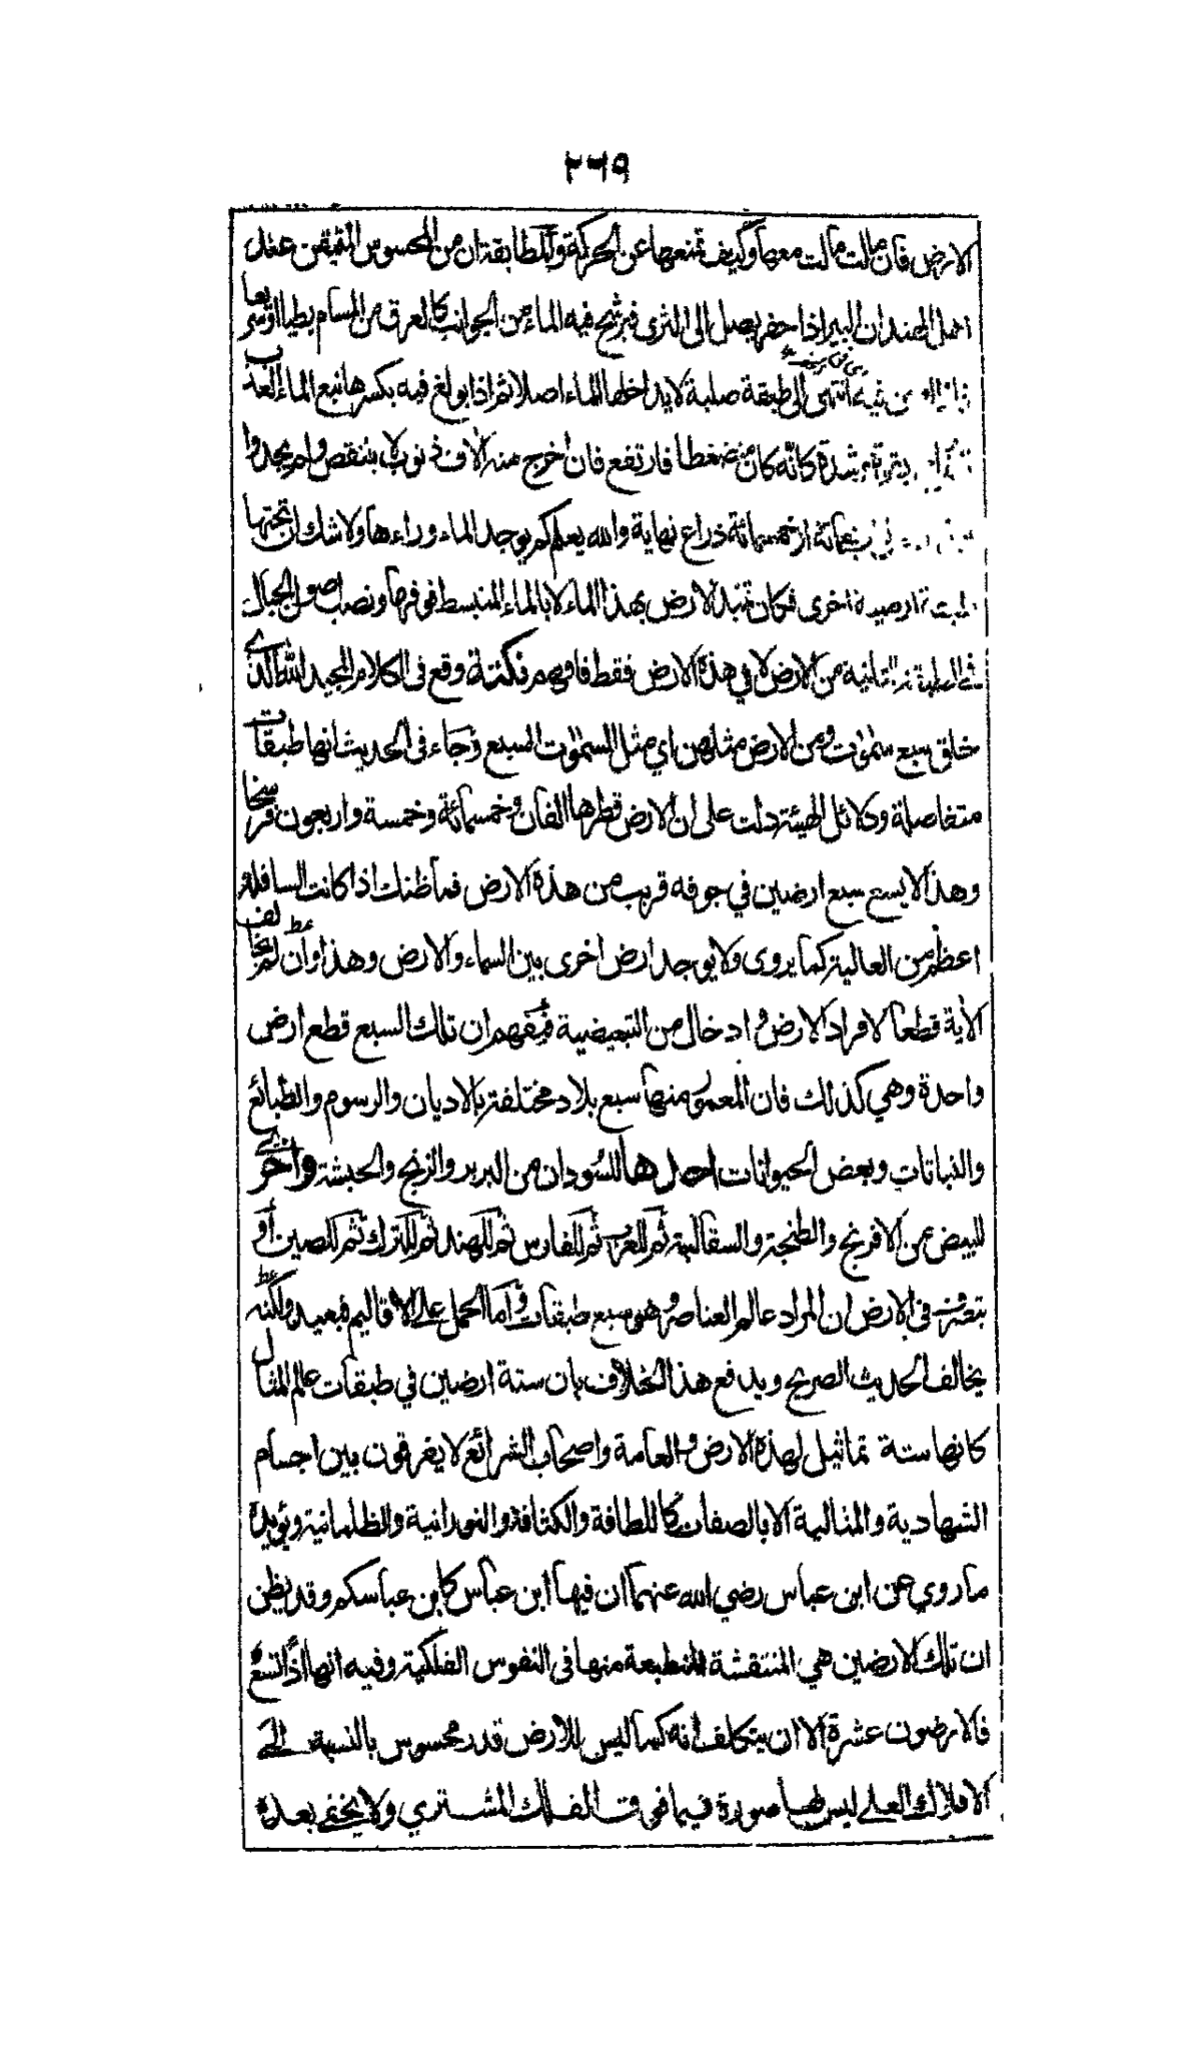 ٢٦٩
الارض فان مالت مالت معها وكيف تمنعها عن الحركة وللطابقتان من المحسوس المتيقن عند
اهل الهند ان البير اذا حفر يصل الى الثرى فيرشح فيه الماء من الجوانب كالعرق من المسام بطيا او سريعا
انتهى الى طبقة صلبة لا يداخلها الماء اصلا ثم اذا بولغ فيه بكسرها نبع الماء العذب
بشدة كانه كان منضغطا فارتفع فان اخرج منه الاف ذنوب لا ينتقص ولم يجدوا
خمسمائة ذراع نهاية والله يعلم كم يوجد الماء وراءها ولا شك ان تحتها
اخرى فكان تميد الارض بهذا الماء لا بالماء المنبسط فوقها ونصب اصول الجبال
في الطبقة الثانية من الارض لا في هذه الارض فقط فافهم نكتة وقع في الكلام المجيد الله الذي
خلق سبع سموات ومن الارض مثلهن اي مثل السموات السبع وجاء في الحديث انها طبقات
متفاصلة ودلائل الهيئة دلت على ان الارض قطرها الفان وخمسمائة وخمسة واربعون فرسخا
وهذا لا يسع سبع ارضين في جوفه قريب من هذه الارض فما ظنك اذا كانت السافلة
اعظم من العالية كما يروى ولا يوجد ارض اخرى بين السماء والارض وهذا وان لم يخالف
الاية قطعا لافراد الارض و ادخال من التبعيضية فيفهم ان تلك السبع قطع ارض
واحدة وهي كذلك فان المعمور منها سبع بلاد مختلفة بالاديان والرسوم والطبائع
والنباتات وبعض الحيوانات احدها للسودان من البربر والزنج والحبشة واخرى
للبيض من الافرنج والطنجة والسقالبة ثم للعرب ثم للفارس ثم للهند ثم للترك ثم للصين او
في الارض ان المراد عالم العناصر وهو سبع طبقات واما الحمل على الاقاليم فبعيد ولكنه
يخالف الحديث الصريح ويدفع هذا الخلاف بان ستة ارضين في طبقات عالم المثال
كانها ستة تماثيل لهذه الارض والعامة واصحاب الشرائع لا يفرقون بين اجسام
الشهادية والمثالية الا بالصفات كاللطافة والكثافة والنورانية والظلمانية ويؤيده
ما روي عن ابن عباس رضي الله عنهما ان فيها ابن عباس كابن عباسكم وقد يظن
ان تلك الارضين هي المنتقشة المنطبعة منها في النفوس الفلكية وفيه انها اذا تسع
فالارضون عشرة الا ان يتكلف انه كما ليس للارض قدر محسوس بالنسبة الى
الافلاك العلى ليس لها صورة فيما فوق الفلك المشتري ولا يخفى بعده